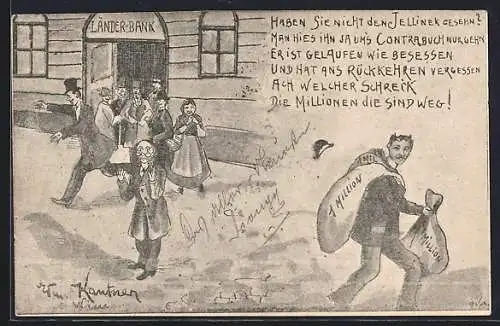 LÄNDER-BANK
HABEN SIE NICHT DEN JELLINEK GESEHN?
MAN HIES IHN JA UMS CONTRABUCH NUR GEHN
ER IST GELAUFEN WIE BESESSEN
UND HAT ANS RÜCKKEHREN VERGESSEN
ACH WELCHER SCHRECK
DIE MILLIONEN DIE SIND WEG!
1 MILLION
1 MILLION
Kantner